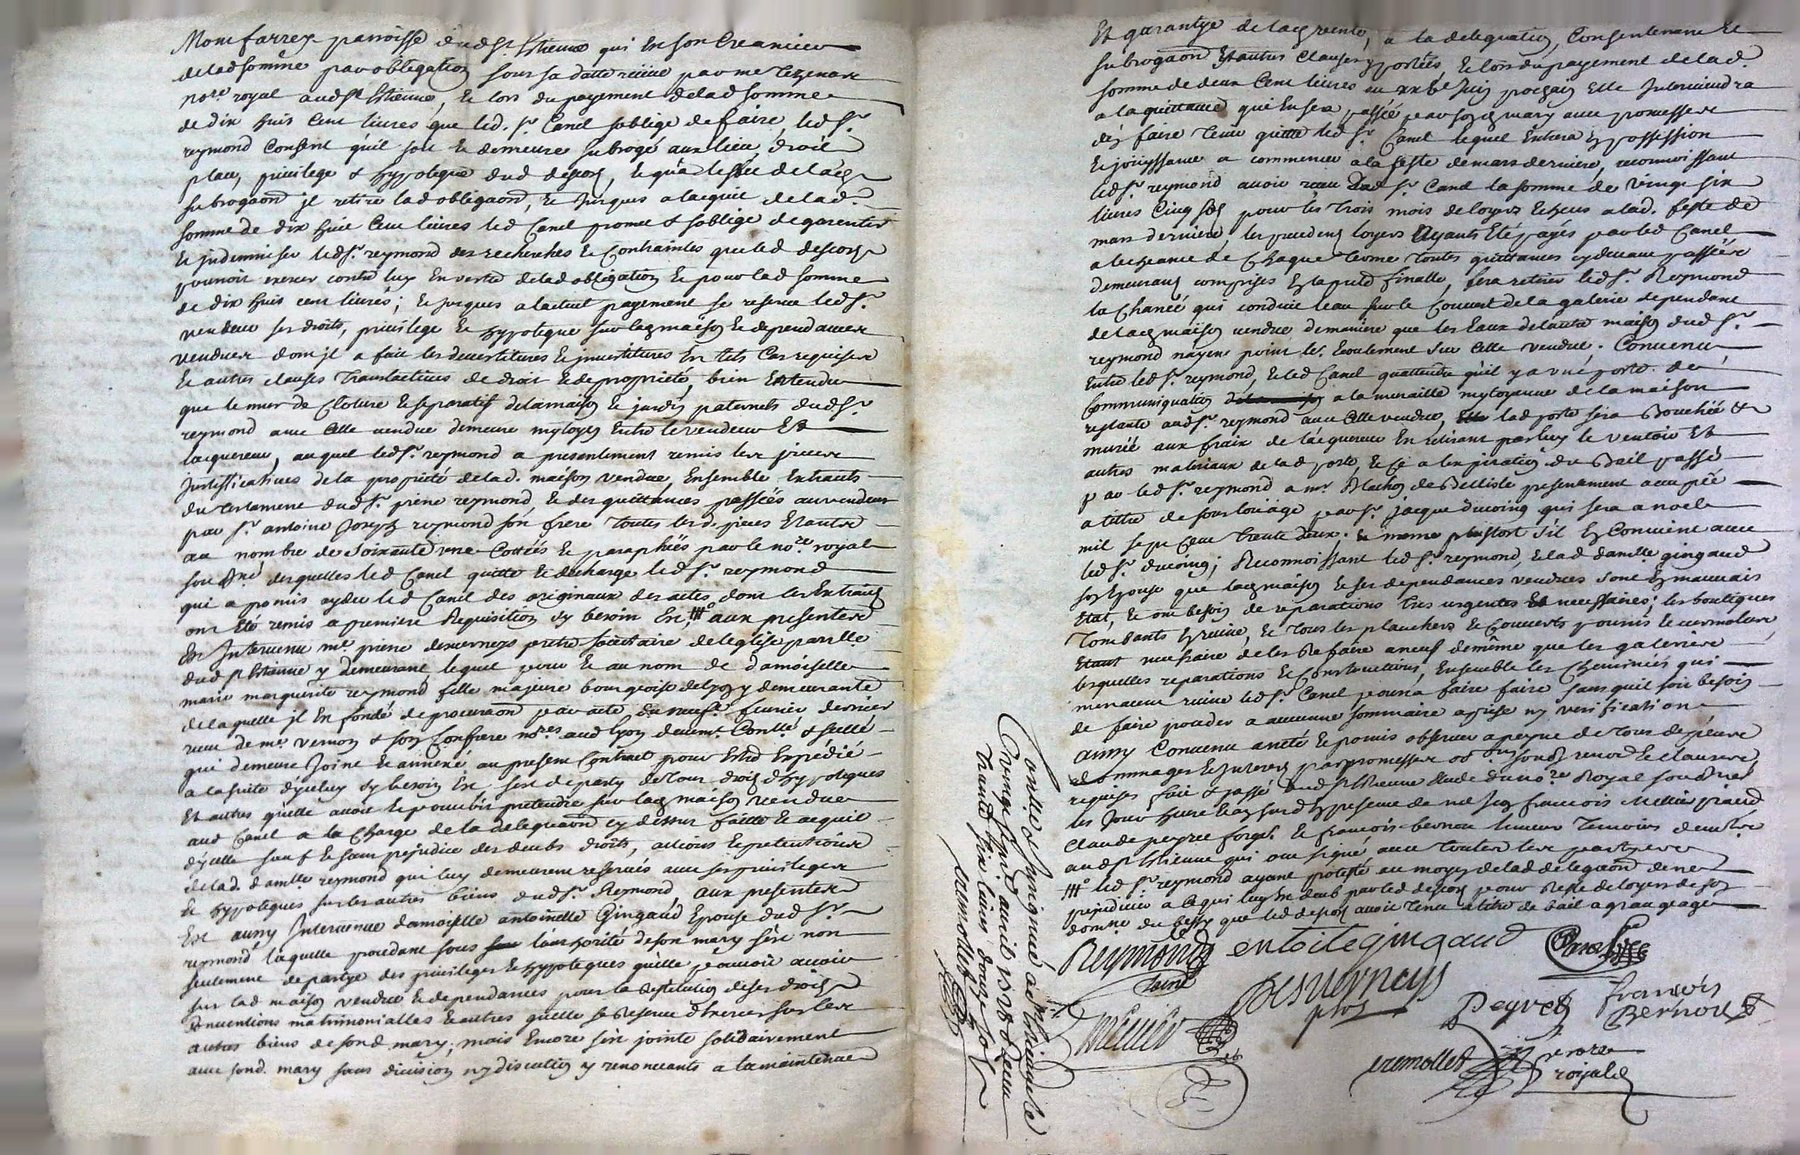 Montferrey parroisse dud St Estienne qui En son Creancier
de lad somme par obligation sous sa datte receue par me Tezenas
nore royal aud St Estienne, Et lors du payement de lad somme
de dix huit Cent livres que led. Sr. Canel soblige de faire led Sr.
reymond Consent quil soit Et demeure subrogé aux lieu, droit
place, privilege & hypoteque dud descos, Et qu'a
subrogaon jl retire lad obligaon, Et jusques a lacquit de lad.
somme de dix huit Cent livres led Canel promet & soblige de garentir
Et jndemniser led Sr. reymond des recherches Et Contraintes que led descos
pouroit exercer contre luy En vertu de lad obligation Et pour lad somme
de dix huit cent livres; Et jusques a lactuel payement se reserve led Sr.
vendeur ses droits, privilege Et hypoteque sur lad maison Et dependances
vendues dont jl a fait les devestitures Et jnvestitures En tels Cas requises
Et autres clauses Translatives de droit Et de proprieté, bien Entendu
que le mur de Cloture Et separatif de la maison Et jardin paternels dud Sr.
reymond avec Celle vendue demeure mytoyen Entre le vendeur Et
lacquereur, auquel led Sr. reymond a presentement remis les pieces
justifficatives de la proprieté de lad. maison vendue, Ensemble Extraits
du testament dud Sr. pierre reymond, Et des quittances passées au vendeur
par Sr. antoine Joseph reymond son frere Toutes lesd. pieces Etants
au nombre de Soixante une Cottées Et paraphées par le nore. royal
sousné desquelles led Canel quitte Et decharge led Sr. reymond
qui a promis ayder led Canel des originaux des actes dont les Extraits
ont Eté remis a premiere Requisition sy besoin Est, aux presentes
Est Intervenu me. pierre desverneys pretre societaire de leglise parrlle.
dud St Estienne y demeurant, lequel pour Et au nom de damoiselle
marie marguerite reymond fille majeure bourgeoise de lyon y demeurante
de laquelle jl En fondé de procuraon par acte du neufe. fevrier dernier
receu de me. vernon & son Confrere nores. aud lyon devemt. Conllé & scellé
qui demeure Joint Et annexé au present Contract pour Estre Expedié
a la suite diceluy sy besoin Est, sest departy de tous droits dhypoteques
Et autres quelle auroit Et pouroit pretendre sur lad maison vendue
aud Canel a la Charge de la delegaon cy dessus faitte Et acquit
dicelle sauf Et sans prejudice des deubs droits, actions Et pretentions
de lad. damlle. reymond qui luy demeurent reservés avec ses privileges
Et hypoteques sur les autres biens dud Sr. Reymond, aux presentes
Est aussy Intervenue damoiselle antoinette Gingaud Epouse dud Sr.
reymond laquelle procedant sous lauthorité de son mary sest non
seulement departye des privileges Et hypoteques quelle pouroit avoir
sur lad maison vendue Et dependances pour la Restitution de ses droits
Conventions matrimonialles Et autres quelle se Reserve dExercer sur les
autres biens de sond. mary, mais Encore sest jointe solidairement
avec sond. mary sans division ny discution y renonceants a la maintenue
Et garantye de lad vente, a la delegation, Consentement Et
subrogaon Et autres Clauses y portées, Et lors du payement de lad.
somme de deux Cent livres au juin prochain Elle Interviendra
a la quittance qui En sera passée par son mary avec promesse
dEn faire Tenir quitte led Sr. Canel lequel Entrera En possession
Et jouyssance a commencer a la feste de mars derniere, reconnoissant
led Sr. reymond avoir receu dud Sr. Canel la somme de vingt six
livres Cinq sols pour les trois mois de loyers Echeus a lad. feste de
mars derniere, les precedents loyers Ayants Eté payés par led Canel
a lecheance de Chaque Terme Toutes quittances cy devant passées
demeurant comprises En la pnte finalle, fera retirer led Sr. Reymond
la Chanée qui conduit leau sur le Couvert de la galerie dependante
de lad maison vendue de maniere que les Eaux de lautre maison dud Sr.
reymond nayent point leur Ecoulement sur Celle vendue. Convenu
Entre led Sr. reymond, Et led Canel quattendu quil y a une porte de
Communiquation a la muraille mytoyenne de la maison
restante aud Sr. reymond avec Celle vendue, lad porte sera Bouchée &
murée aux fraix de lacquereur En retirant par luy le ventoir Et
autres materiaux de lad porte, Et Ce a lexpiration du Bail passé
par led Sr. reymond a mr. Blachon de Bellisle presentement occupée
a tittre de souslouage par Sr. jacque ducoing qui sera a noel
mil sept Cent Trente deux. Et meme plustost sil En Convient avec
led Sr. ducoing; Reconnoissant led Sr. reymond, Et lad damlle. gingaud
son Epouse que lad maison Et ses dependances vendues sont En mauvais
Etat, Et ont besoin de reparations Tres urgentes Et necessaires; les boutiques
Tombants En ruine, Et Tous les planchers Et Couverts pourris Et vermolus,
Etant necessaire de les Refaire a neuf de même que les galeries
lesquelles reparations Et Constructions, Ensemble les Cheminées qui
menacent ruine led Sr. Canel poura faire faire sans quil soit besoin
de faire proceder a aucune sommaire aprise ny verification
aussy Convenu arreté Et promis observer a peyne de Tous depens
dommages Et Interets par promesse obon. fonds renoon Et clauses
requises fait & passé aud St Estienne Etude du nore. Royal sousné
les Jour heure Et an susd En presence de francois
Claude peyret forgr. Et francois bernou Temoins demts
aud St Estienne qui ont signé avec Toutes les partyes
led Sr. reymond ayant protesté au moyen de lad delegaon de ne
prejudicier a Ce qui luy Est deub par led descos pour reste de loyers de son
domaine du que led descos avoit Tenu a titre de bail a grangeage
Reymond entoitegingaud Canel
Desverneys
ptre
Peyret francois
Bernou
meunier
cremollet nore
royal
Conllé & Scellé a St Etienne le
vingt Sixe. avril 1728 Receu
Trante six livres douze sols
cremollet